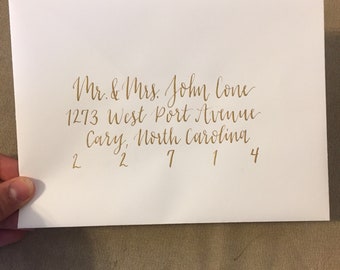 Mr. & Mrs. John Cone
1273 West Port Avenue
Cary, North Carolina
2 2 7 1 4